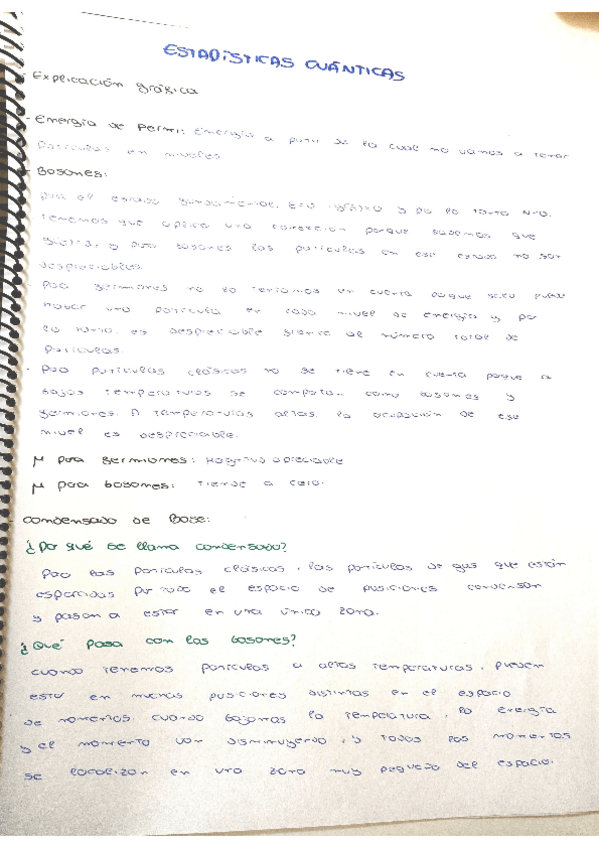 ESTADÍSTICAS CUÁNTICAS
- Explicación gráfica
- Energía de Fermi: Energía a partir de la cual no vamos a tener
partículas en niveles
- Bosones:
para el estado fundamental, E=0 y por lo tanto
tenemos que aplicar una corrección porque sabemos que
y para bosones las partículas en ese estado no son
despreciables.
- Para fermiones no lo teníamos en cuenta porque solo puede
haber una partícula en cada nivel de energía y por
lo tanto, es despreciable frente al número total de
partículas.
- Para partículas clásicas no se tiene en cuenta porque a
bajas temperaturas se comportan como bosones y
fermiones. A temperaturas altas, la ocupación de ese
nivel es despreciable.
μ para fermiones: Negativo apreciable
μ para bosones: Tiende a cero.
- Condensado de Bose:
¿Por qué se llama condensado?
Para las partículas clásicas, las partículas de gas que están
esparcidas por todo el espacio de posiciones condensan
y pasan a estar en una única zona.
¿Qué pasa con los bosones?
cuando tenemos partículas a altas temperaturas, pueden
estar en muchas posiciones distintas en el espacio
de momentos. cuando bajamos la temperatura, la energía
y el momento van disminuyendo, y todos los momentos
se localizan en una zona muy pequeña del espacio.